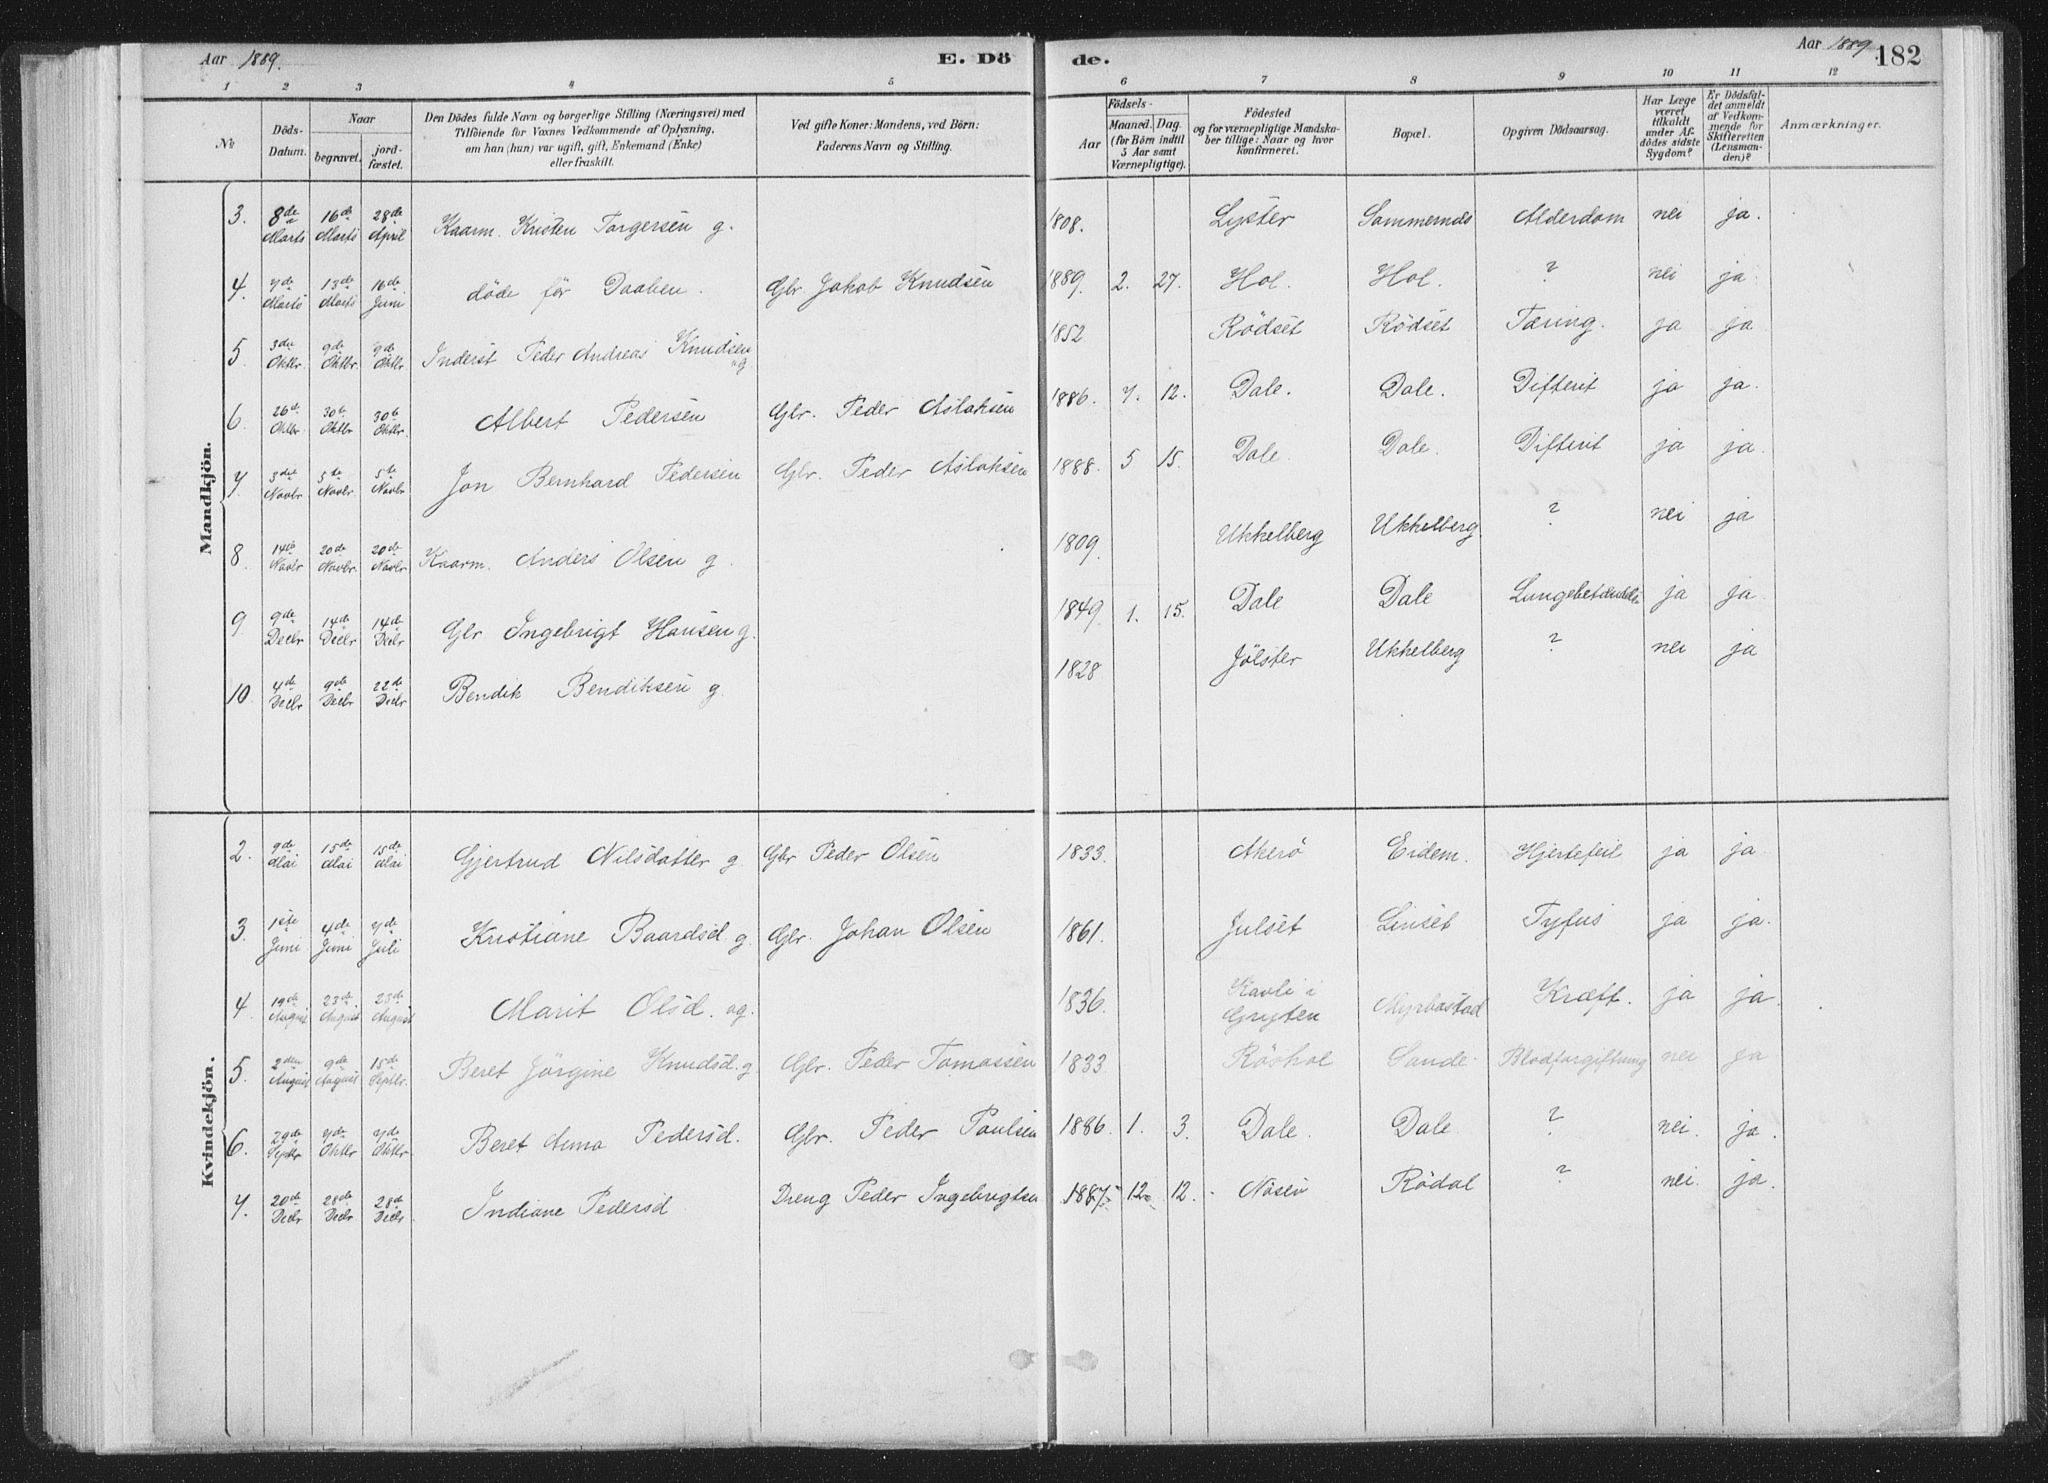 Aar 1889. E. Döde. Aar 1889. 182
1 2 3 4 5 6 7 8 9 10 11 12
№ Döds-Datum. Naar begravet. jordfæstet. Den Dödes fulde Navn og borgerlige Stilling (Næringsvei) med Tilföiende for Voxnes Vedkommende af Oplysning, om han (hun) var ugift, gift, Enkemand (Enke) eller fraskilt. Ved gifte Koner: Mandens, ved Börn: Faderens Navn og Stilling. Födsels- Aar Maaned. Dag. (for Börn indtil 5 Aar samt Værnepligtige). Födested og for værnepligtige Mandskaber tillige: Naar og hvor konfirmeret. Bopæl. Opgiven Dödsaarsag. Har Læge været tilkaldt under Afdödes sidste Sygdom? Er Dödsfaldet anmeldt af Vedkommende for Skifteretten (Lensmanden)? Anmærkninger.
Mandkjön.
3. 8de Marts 16de Marts 28de April Kaarm. Kristen Torgersen g. 1808. Lyster Alderdom nei ja.
4. 7de Marts 13de Marts 16de Juni döde för Daaben. Gbr Jakob Knudsen 1889. 2. 27. Hol. Hol. ? nei ja.
5 3die Oktbr. 9de Oktbr. 9de Oktbr Inderst Peder Andreas Knudsen g 1852 Rödset Rödset Tæring. ja ja
6. 26de Oktbr. 30te Oktbr 30te Oktbr. Albert Pedersen Gbr. Peder Aslaksen 1886. 7. 12. Dale. Dale. Difterit ja ja.
7 3die Novbr. 5te Novbr. 5te Novbr Jon Bernhard Pedersen Gbr. Peder Aslaksen 1888. 5 15. Dale. Dale. Difterit ja ja.
8. 14de Novbr 20de Novbr. 20de Novbr Kaarm. Anders Olsen g. 1809. Ukkelberg Ukkelberg ? nei ja
9. 9de Decbr 14de Decbr 14de Decbr Gbr Ingebrigt Hansen g. 1849. 1. 15. Dale Dale Lungebetændelse ja ja.
10. 4de Decbr 9de Decbr 22de Decbr Bendik Bendiksen g. 1828 Jölster Ukkelberg ? nei ja
Kvindekjön.
2. 9de Mai 15de Mai 15de Mai Gjertrud Nilsdatter g. Gbr Peder Olsen 1833. Akerö Eidem. Hjertefeil ja ja.
3. 1ste Juni 4de Juni 7de Juli Kristiane Baardsd. g. Gbr. Johan Olsen 1861. Julset Linset Tyfus ja ja.
4. 19de August 23de August 23de August Marit Olsd. ug. 1836. Kavli i Gryten Myrbostad Kræft. ja ja.
5. 2den August 9de August 15de Septbr. Beret Jörgine Knudsd. g. Gbr. Peder Tomassen 1833. Röshol Sande Blodforgiftning nei ja
6. 29de Septbr 7de Oktbr 7de Oktbr Beret Anna Pedersd. Gbr. Peder Paulsen 1886. 1. 3. Dale. Dale ? nei. ja.
7. 20de Decbr 28de Decbr 28de Decbr. Indiane Pedersd Dreng Peder Ingebrigtsen 1887. 12. 12. Nåsen Rödal ? nei. ja.